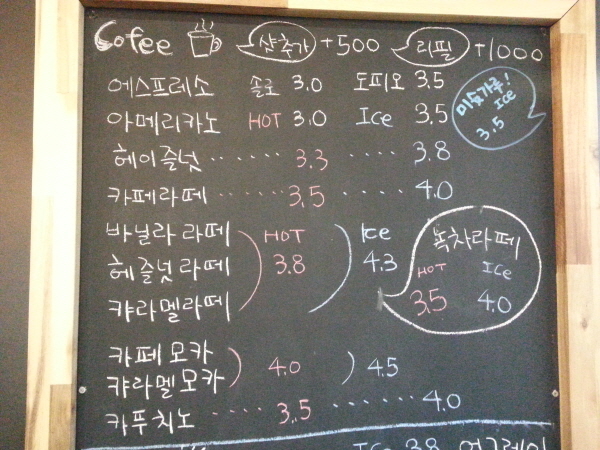 Cofee 샷추가 +500 리필 +1000
에스프레소 솔로 3.0 도피오 3.5
미숫가루! ICE 3.5
아메리카노 HOT 3.0 Ice 3.5
헤이즐넛 ...... 3.3 .... 3.8
카페라떼 ...... 3.5 ..... 4.0
바닐라 라떼 HOT Ice
헤즐넛 라떼 3.8 4.3
캬라멜라떼
녹차라떼
HOT ICe
3.5 4.0
카페 모카
캬라멜 모카 4.0 4.5
카푸치노 .... 3.5 ....... 4.0
Ice 3.8